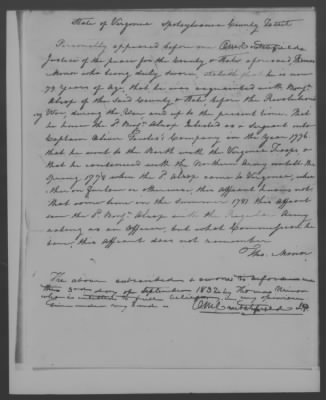 State of Virginia Spotsylvania County To wit
Personally appeared before me
Justice of the peace for the County & State aforesaid, Thomas
Minor who being duly sworn, stateth that he is now
79 years of Age, that he was acquainted with Benjn.
Alsop of the said County & State before the Revolutionary
War, during the War and up to the present time. That
he knew the sd. Benjn. Alsop Inlisted as a Serjeant into
Captain Oliver Company in the year 1776.
that he went to the North with the Virginia Troops &
that he continued with the Northern Army untill the
Spring 1778 when the sd. Alsop came to Virginia, whe
ther on furlow or otherwise, this affiant knows not
that some time in the Summer 1781 this affiant
saw the sd. Benjn. Alsop with the Army
acting as an Officer, but what Commission he
bore, this affiant does not remember
Tho. Minor
The above subscribed & sworn to before me
this 3rd day of September 1832 by Thomas Minor
who is entitled to full belief in my opinion
Given under my hand